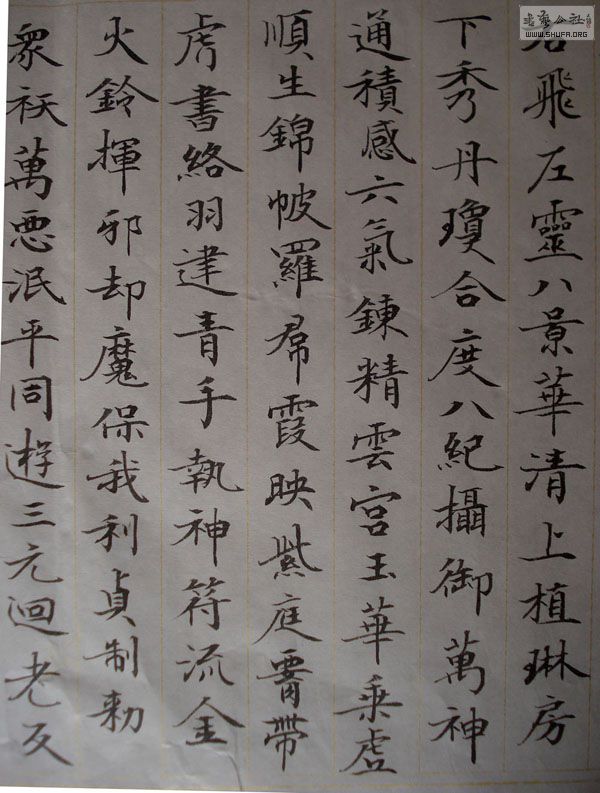 書藝公社
WWW.SHUFA.ORG
飛左靈八景華清上植琳房
下秀丹瓊合度八紀攝御萬神
通積感六氣鍊精雲宮玉華乘虛
順生錦帔羅帬霞映紫庭腰帶
虎書絡羽建青手執神符流金
火鈴揮邪却魔保我利貞制勑
眾祅萬惡泯平同遊三元迴老反